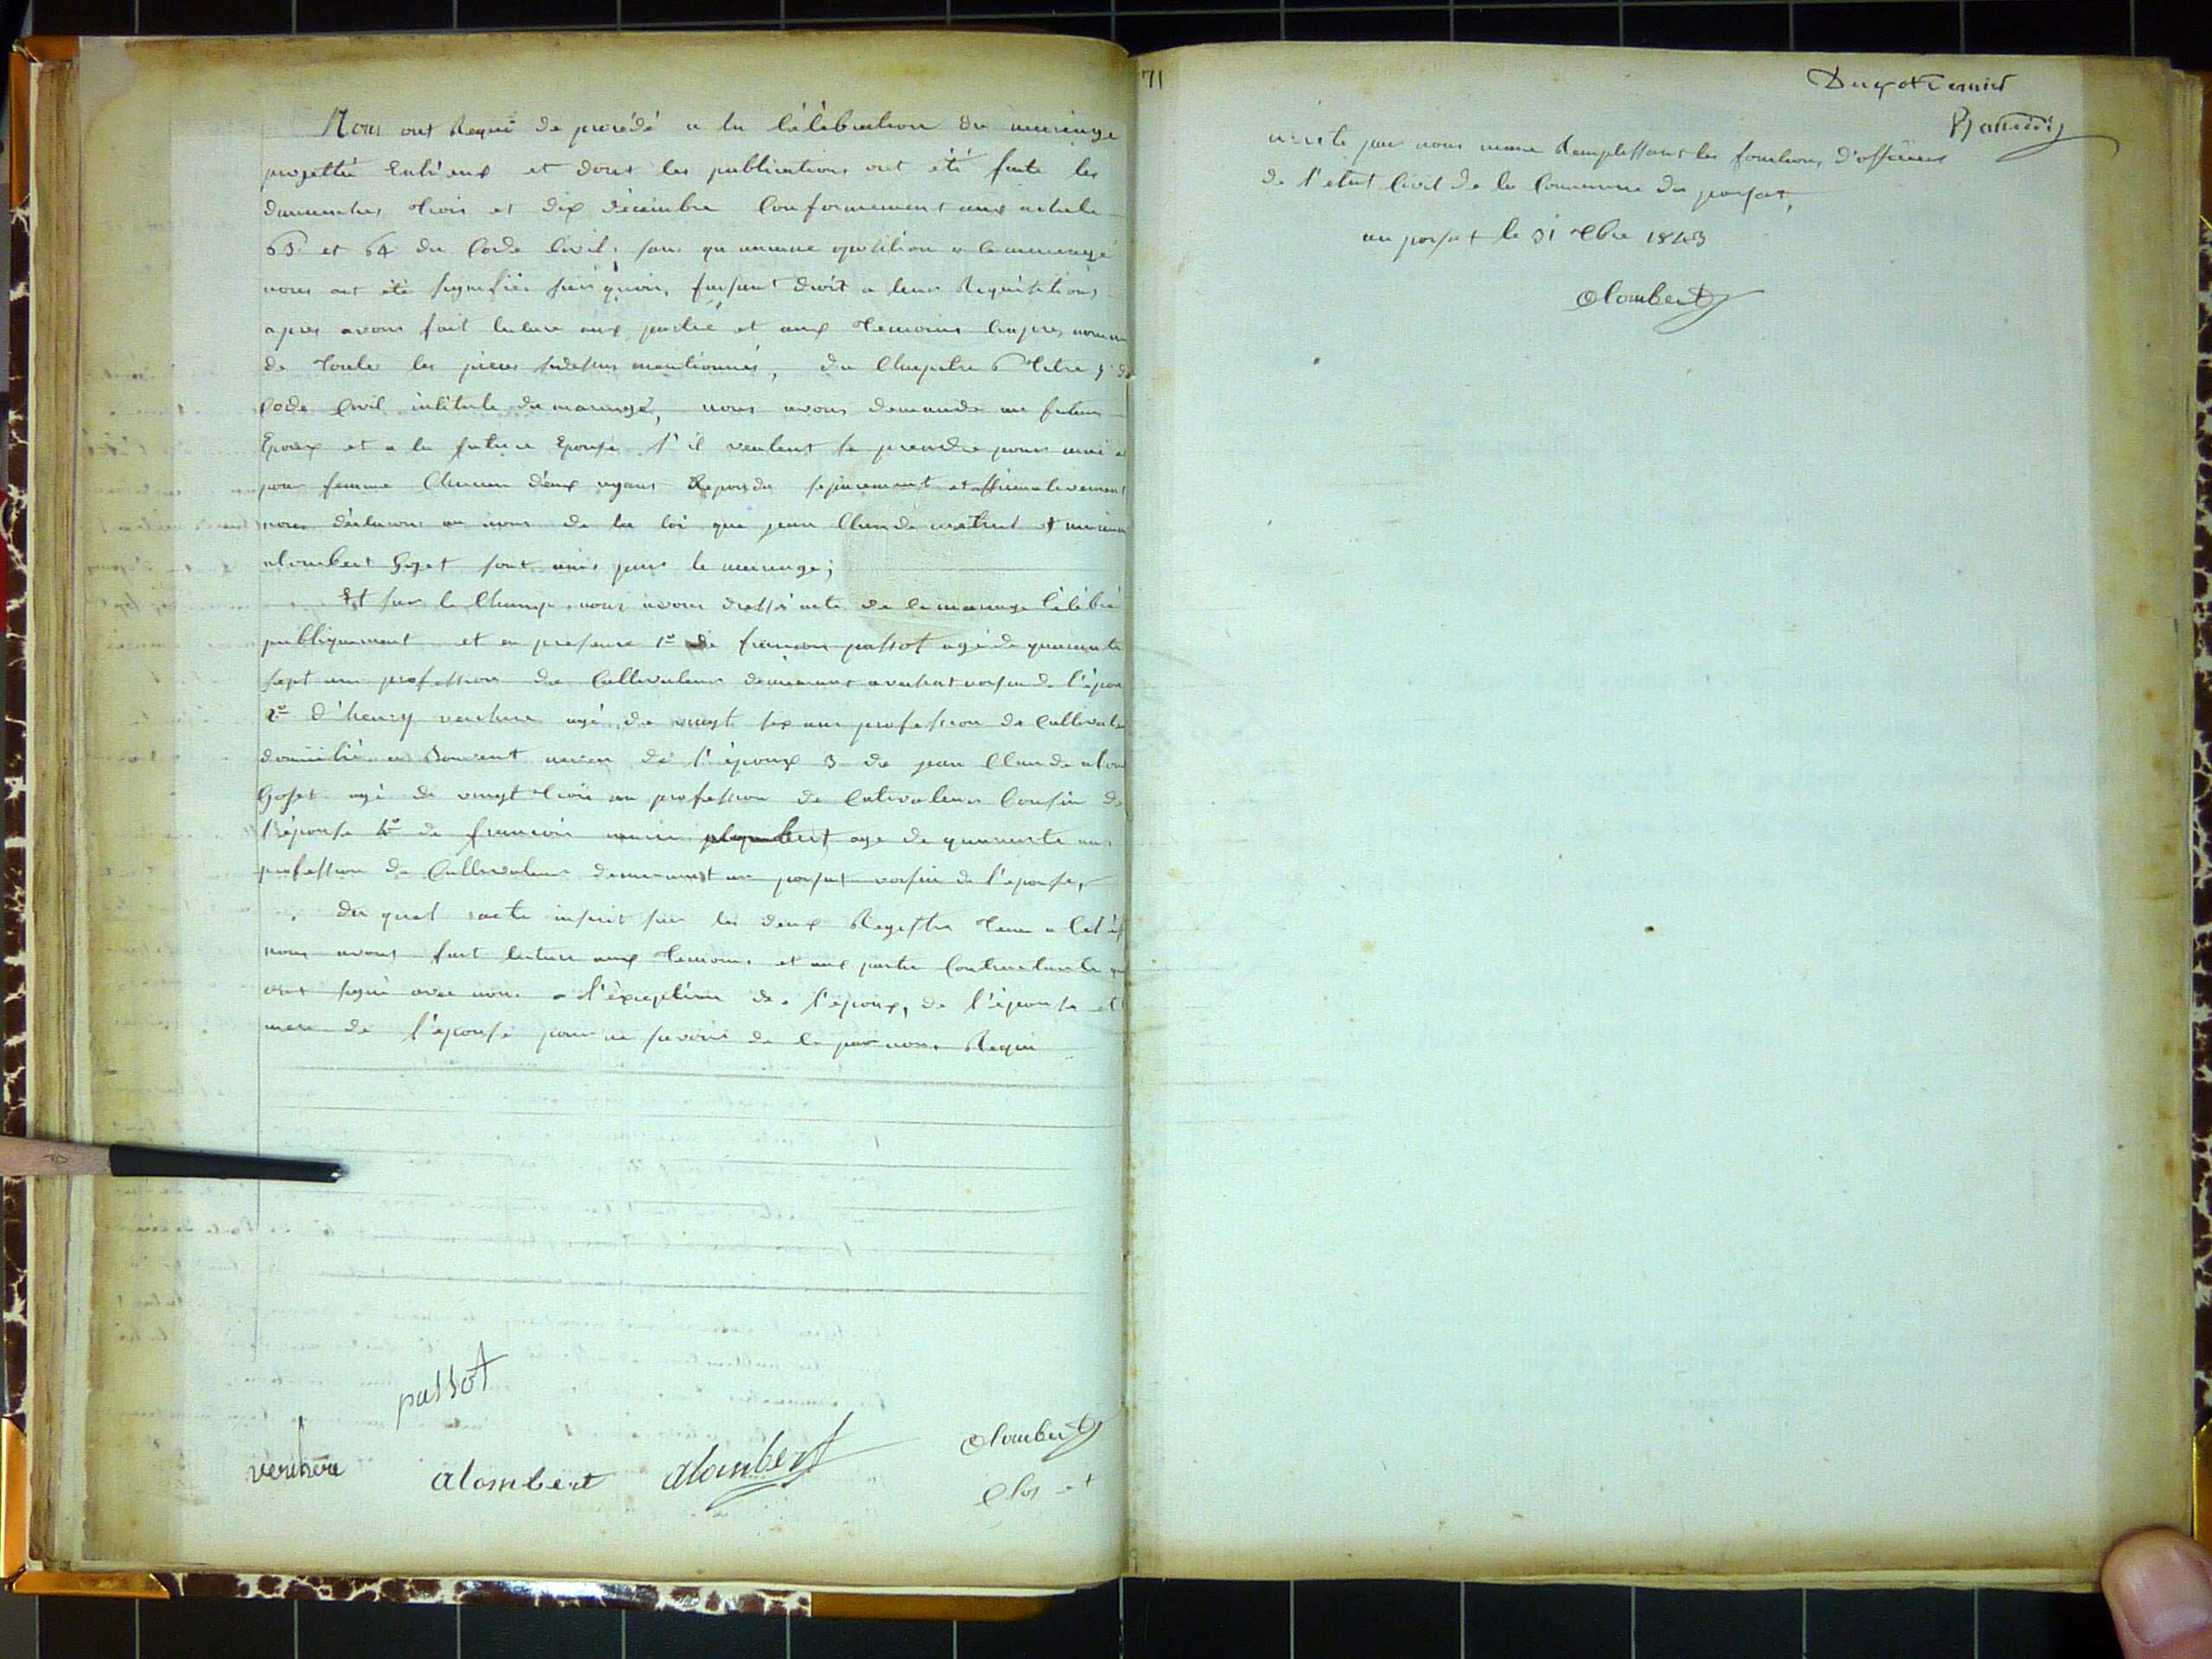 Nous ont Requi de procédé a la Célébration du mariage
projetté Entr'eux et dont les publications ont été faite les
dimanches trois et dix décembre Conformement aux article
63 et 64 du Code Civil, sans qu aucune opposition a ce mariage
nous ait été signifiée faisant droit a leur Requisitions
apres avoir fait lecture aux partié et aux temoins Ciapres nommé
de toutes les pieces sudessus mentionnés, du Chapitre 6 titre 5 du
Code Civil intitule du mariage, nous avons demandé au futur
Epoux et a la future Epouse s'il veulent se prendre pour mari et
pour femme Chacun d'eux ayant Repondu separement et affirmativement
nous déclarons au nom de la loi que jean Claude et
alombert Goget sont unis par le mariage;
Et sur le Champ nous avons dressé acte de ce mariage Célébré
publiquement et en presence 1º de francois passot agé de quarante
sept ans profession de Cultivateur demeurant voisin de l'époux
2º d'henry verchere agé de vingt six ans profession de Cultivateur
domicilié a Donsent de l'époux 3 de jean Claude alom
Goget agé de vingt trois an profession de Cultivateur Cousin de
l'épouse 4º de francois marie alombert age de quarante ans
profession de Cultivateur demeurant au porsat voisin de l'epouse,
du quel acte inscrit sur les deux Registre tenu a Cet éf
nous avons fait lecture aux temoins et aux partie Contractante qui
ont signé avec nous a l'éxception de l'époux, de l'épouse et
mere de l'épouse pour ne savoir de ce par nous Requi
passot
verchère alombert alombert alombert
71
par nous maire Remplissant les fonctions d'officier
de l'etat Civil de la Commune du porsat,
au porsat le 31 Xbre 1843
alombert